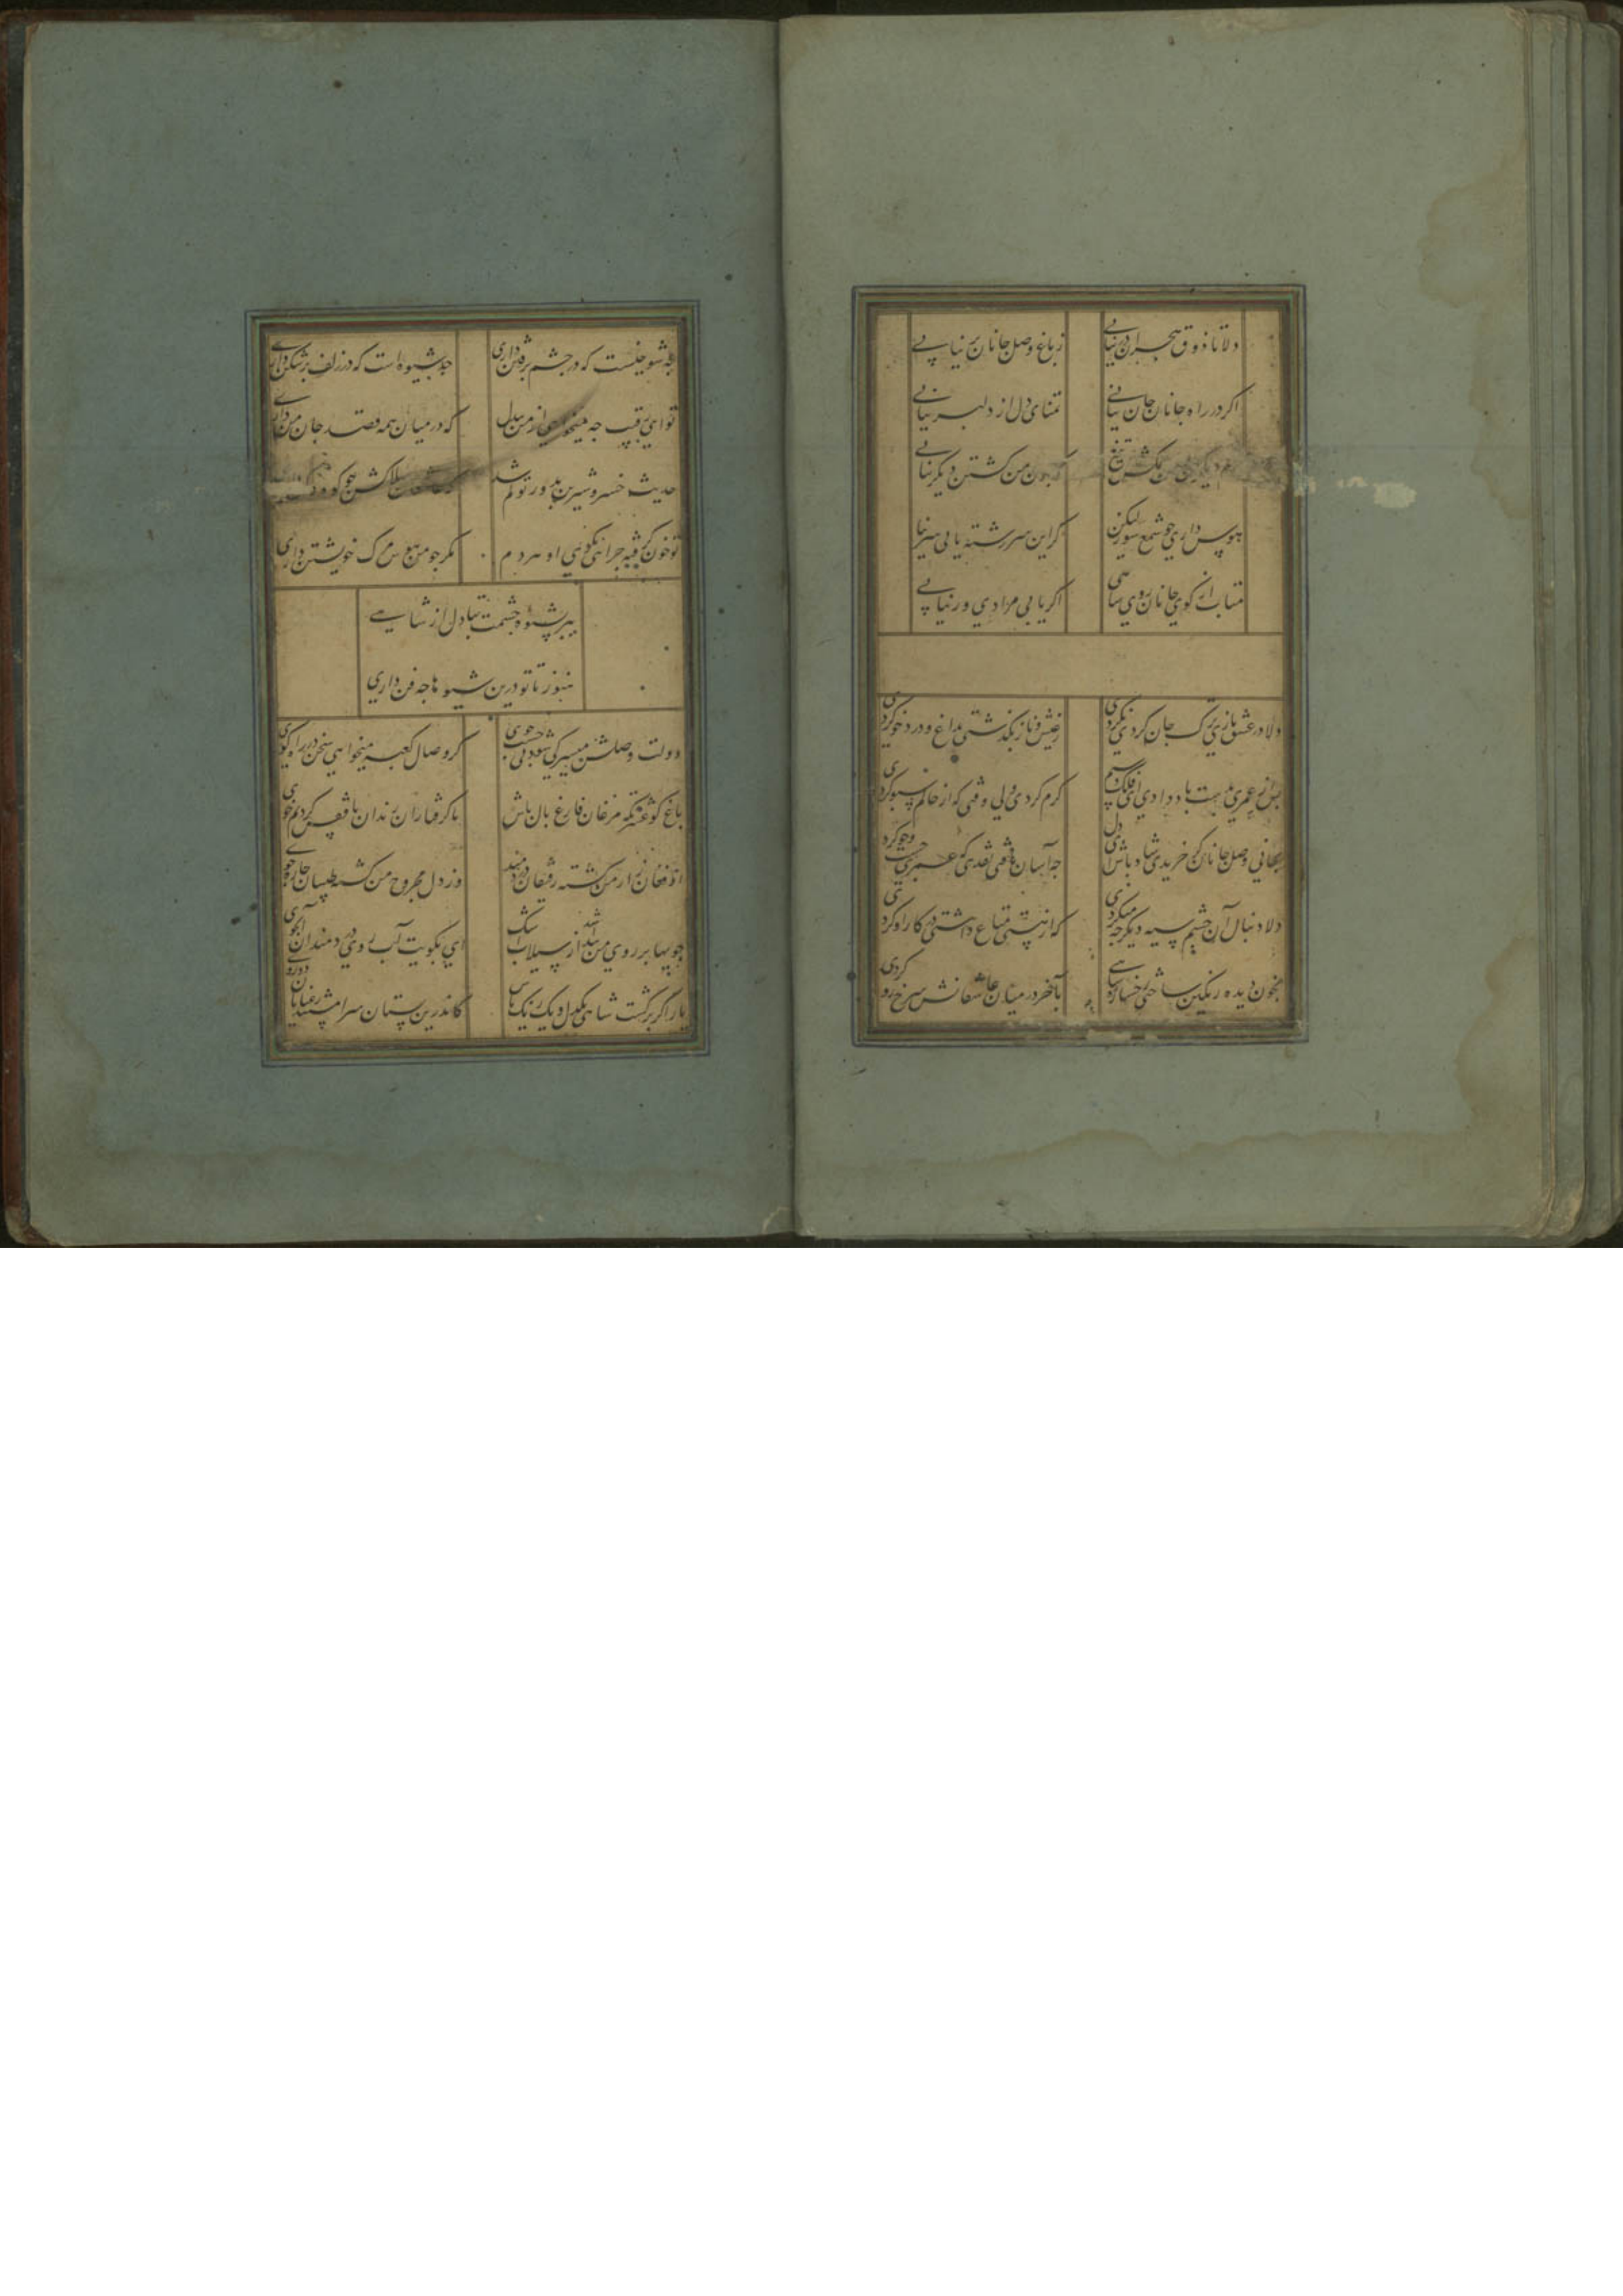 دلا تا ذوق هجران در نیابی
ز باغ وصل جانان بر نیابی
اکر در راه جانان جان نیابی
تمنای دل از دلبر نیابی
تیغ
من کشتن دیکر نیابی
هوس داری چو شمع سوز لیکن
کر این سررشته یابی سر نیابی
متاب از کوی جانان روی شاهی
اکر یابی مرادی ور نیابی
دلا در عشق بازی ترک جان کردی نکو کردی
ز عیش و ناز بکذشتی بداغ و درد خو کردی
پس از عمری بدست باد دادی ای فلک
کرم کردی ولی وقتی که از خاکم سبو کردی
بجانی وصل جانان کر خریدی شاد باش ای دل
جه آسان یافتی نقدی که عمری جست و جو کردی
دلا دنبال آن چشم سیه دیکر جه میکردی
که از هستی متاع داشتی در کار او کردی
بخون دیده رنکین ساختی رخساره شاهی
بآخر در میان عاشقانش سرخ رو کردی
جه شوخیست که در چشم پر فتن داری
جه شیوه است که در زلف پر شکن داری
تو ای رقیب جه میخواهی از من بیدل
که در میان همه قصد جان من داری
حدیث خسرو و شیرین بدور تو کم شد
تو خون کرفته جرا همی او هر دم
مکر جو من هوس مرک خویشتن داری
ببرد شیوه چشمت بتا دل از شاهی
هنوز تا تو درین شیوها جه فن داری
دولت وصلش میسر کی شود بی جست و جوی
کر وصال کعبه میخواهی سخن در راه کوی
باغ کو عشرتکه مرغان فارغ بال باش
ما کرفتاران زندان با قفس کردیم خوی
از فغان زار من کشته رفیقان دردمند
وز دل مجروح من کشته طبیبان جاره جوی
جویها بر روی من شد از سیلاب اشک
ای بکویت آب روی دردمندان آب جوی
یار اکر برکشت شاهی یکدل و یک رنک باش
کاندرین بستان سرا مپسند رعنایان دوروی